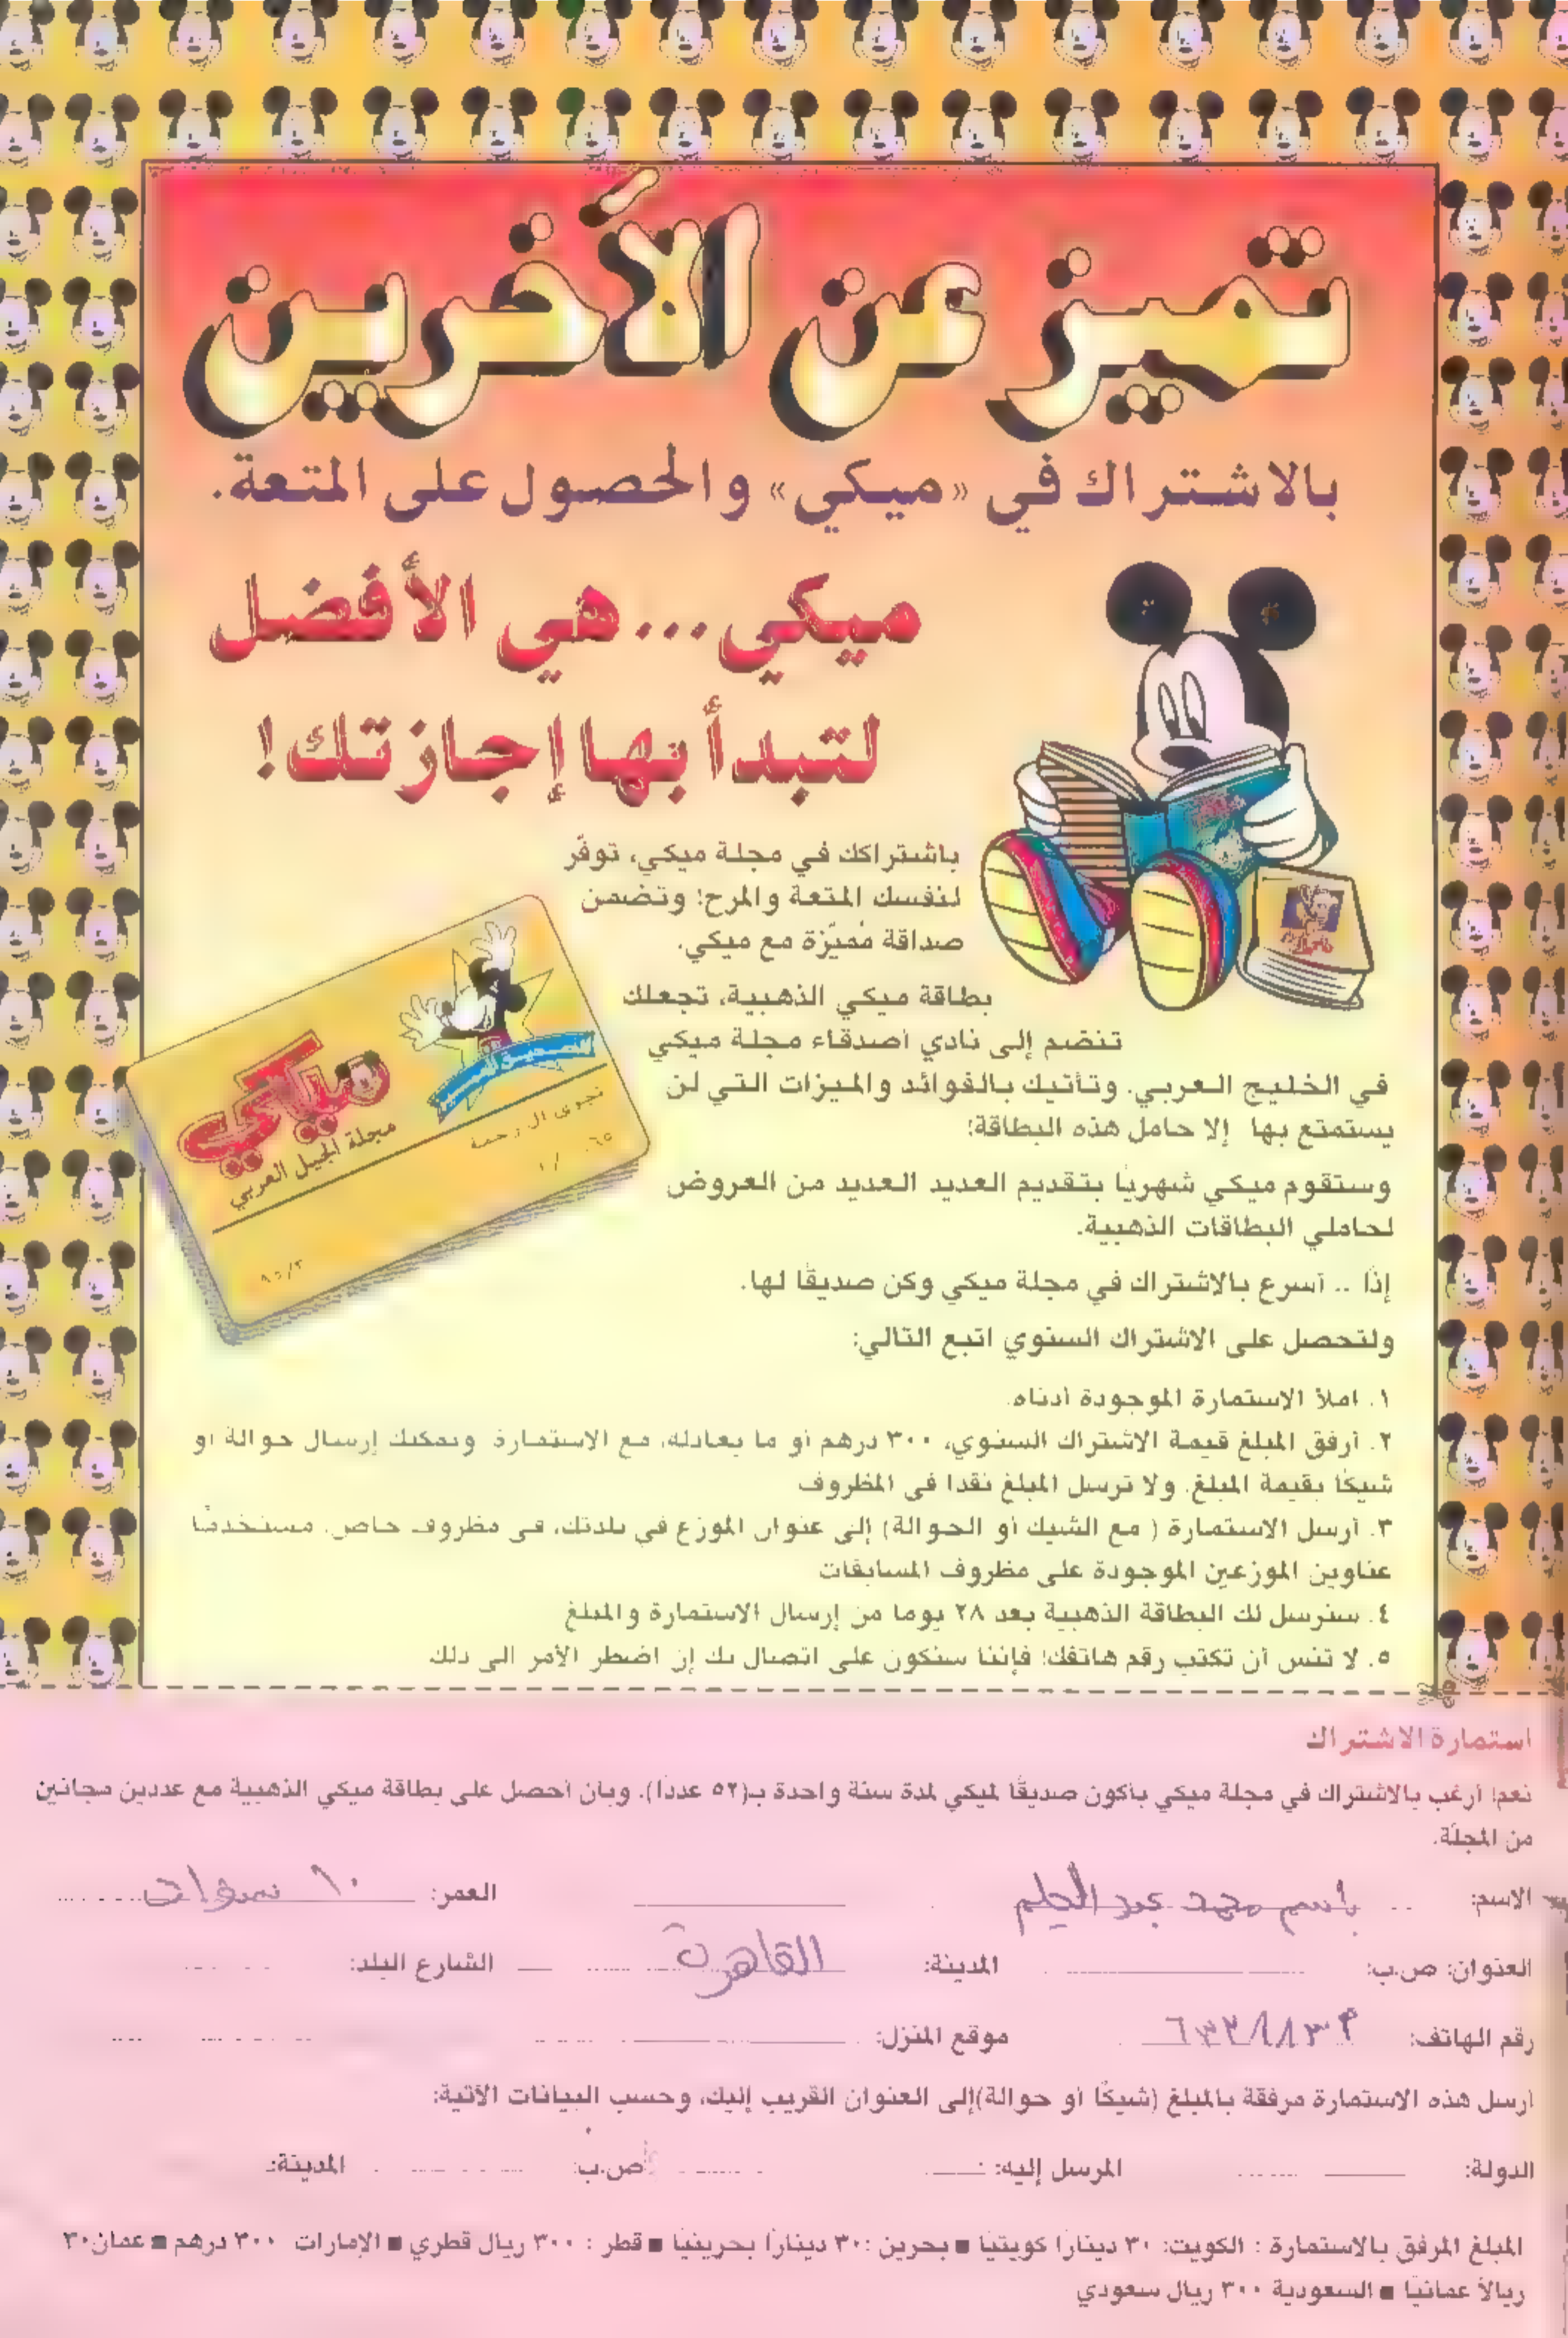 تميز عن الآخرين
بالاشتراك في «ميكي» والحصول على المتعة.
ميكي... هي الأفضل
لتبدأ بها إجازتك!
باشتراكك في مجلة ميكي، توفّر
لنفسك المتعة والمرح! وتضمن
صداقة مُميّزة مع ميكي.
بطاقة ميكي الذهبية، تجعلك
تنضم إلى نادي أصدقاء مجلة ميكي
في الخليج العربي. وتأتيك بالفوائد والميزات التي لن
يستمتع بها إلا حامل هذه البطاقة!
وستقوم ميكي شهرياً بتقديم العديد العديد من العروض
لحاملي البطاقات الذهبية.
ميكي
مجلة الجيل العربي
نجوى ال رحمة
٩٥/٣
إذًا .. أسرع بالاشتراك في مجلة ميكي وكن صديقًا لها.
ولتحصل على الاشتراك السنوي اتبع التالي:
١. املأ الاستمارة الموجودة أدناه.
٢. أرفق المبلغ قيمة الاشتراك السنوي، ٣٠٠ درهم أو ما يعادله، مع الاستمارة ويمكنك إرسال حوالة أو
شيكًا بقيمة المبلغ. ولا ترسل المبلغ نقدا في المظروف
٣. أرسل الاستمارة ( مع الشيك أو الحوالة) إلى عنوان الموزع في بلدتك، في مظروف خاص. مستخدمًا
عناوين الموزعين الموجودة على مظروف المسابقات
٤. سنرسل لك البطاقة الذهبية بعد ٢٨ يوما من إرسال الاستمارة والمبلغ
٥. لا تنس أن تكتب رقم هاتفك! فإننا سنكون على اتصال بك إن اضطر الأمر الى ذلك
استمارة الاشتراك
نعم! أرغب بالاشتراك في مجلة ميكي بأكون صديقًا لميكي لمدة سنة واحدة بـ(٥٢ عددًا). وبأن أحصل على بطاقة ميكي الذهبية مع عددين مجانين
من المجلة.
الاسم: باسم محمد عبد الحليم العمر: ١٠ سنوات
العنوان: ص.ب: المدينة: القاهرة الشارع البلد:
رقم الهاتف: موقع المنزل:
أرسل هذه الاستمارة مرفقة بالمبلغ (شيكًا أو حوالة)إلى العنوان القريب إليك، وحسب البيانات الآتية:
الدولة: المرسل إليه: ص.ب: المدينة:
المبلغ المرفق بالاستمارة : الكويت: ٣٠ دينارًا كويتيًا ■ بحرين :٣٠ دينارًا بحرينيًا ■ قطر : ٣٠٠ ريال قطري ■ الإمارات ٣٠٠ درهم ■ عمان٣٠
ريالاً عمانيًا ■ السعودية ٣٠٠ ريال سعودي